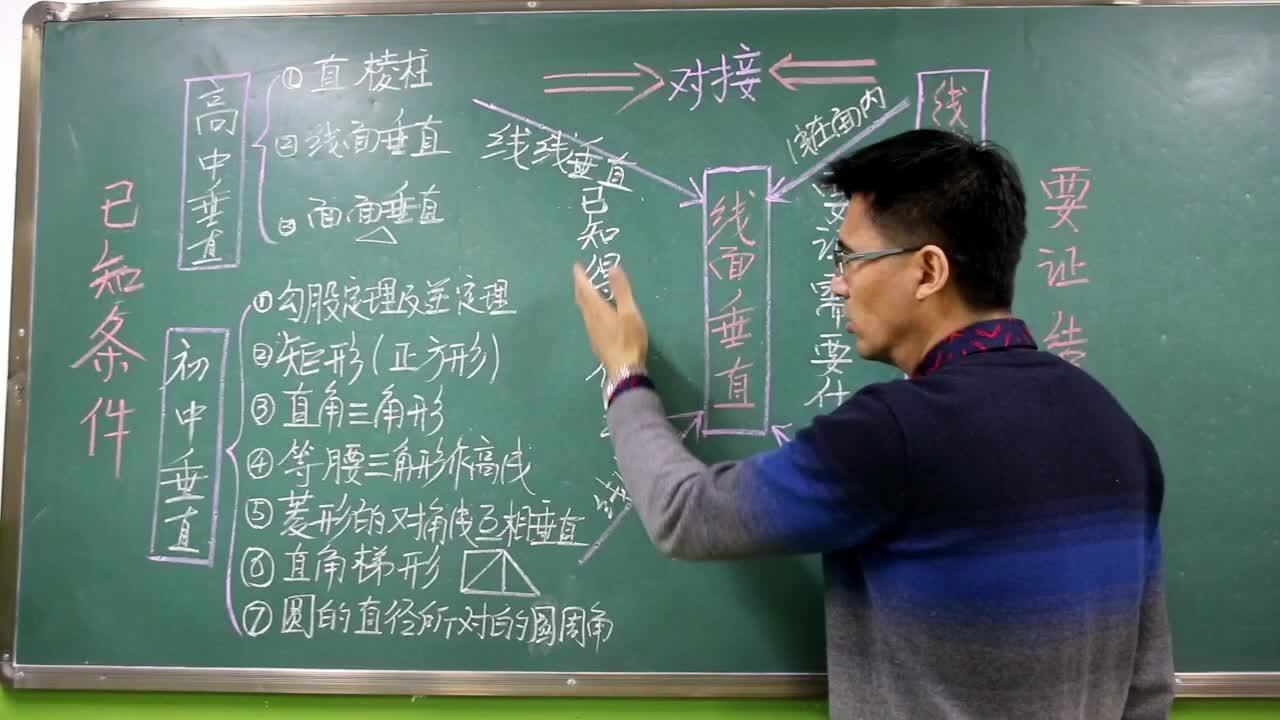 已知条件
高中垂直
①直棱柱
②线面垂直
③面面垂直
初中垂直
①勾股定理及逆定理
②矩形(正方形)
③直角三角形
④等腰三角形作高线
⑤菱形的对角线互相垂直
⑥直角梯形
⑦圆的直径所对的圆周角
对接
线线垂直
已知得
线面垂直
线在面内
线
要证需要什
要证结